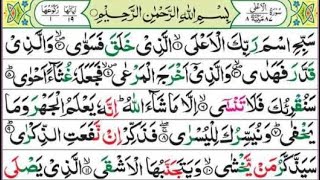 بِسْمِ اللهِ الرَّحْمٰنِ الرَّحِيْمِ
سَبِّحِ اسْمَ رَبِّكَ الْاَعْلَى ۙ الَّذِىْ خَلَقَ فَسَوّٰى ۙ وَالَّذِىْ
قَدَّرَ فَهَدٰى ۙ وَالَّذِىْۤ اَخْرَجَ الْمَرْعٰى ۙ فَجَعَلَهٗ غُثَآءً اَحْوٰى ؕ
سَنُقْرِئُكَ فَلَا تَنْسٰٓى ۙ اِلَّا مَا شَآءَ اللهُ ؕ اِنَّهٗ يَعْلَمُ الْجَهْرَ وَمَا
يَخْفٰى ؕ وَنُيَسِّرُكَ لِلْيُسْرٰى ۖ فَذَكِّرْ اِنْ نَّفَعَتِ الذِّكْرٰى ؕ
سَيَذَّكَّرُ مَنْ يَّخْشٰى ۙ وَيَتَجَنَّبُهَا الْاَشْقَى ۙ الَّذِىْ يَصْلَى